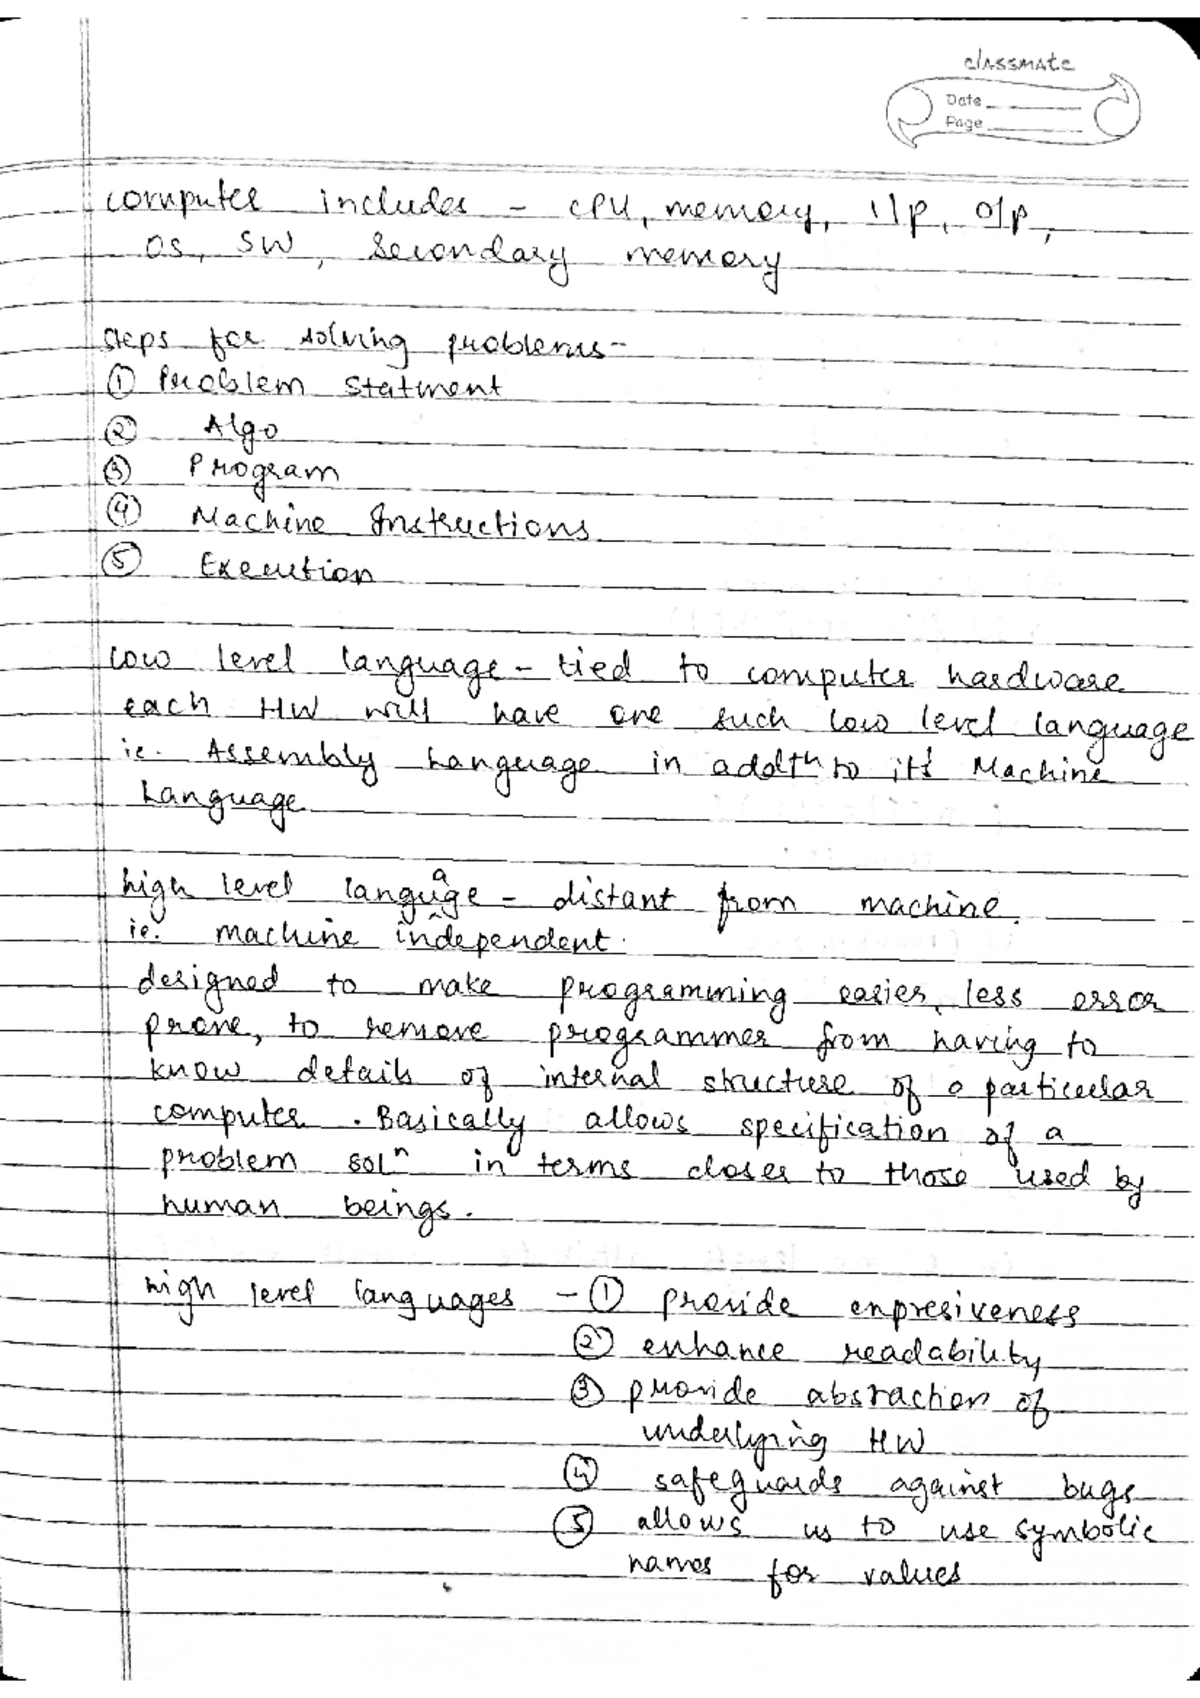 classmate
Date
Page
computer includes - CPU, memory, I/p, O/p,
OS, SW, Secondary memory
steps for solving problems-
① Problem Statment
② Algo
③ Program
④ Machine Instructions
⑤ Execution
low level language - tied to computer hardware
each HW will have one such low level language
ie. Assembly Language in addtⁿ to it's Machine
Language
high level language - distant from machine.
ie. machine independent.
designed to make programming easier, less error
prone, to remove programmer from having to
know details of internal structure of a particular
computer. Basically allows specification of a
problem solⁿ in terms closer to those used by
human beings.
high level languages - ① provide expresiveness
② enhance readability
③ provide abstraction of
underlying HW
④ safeguards against bugs
⑤ allows us to use symbolic
names for values